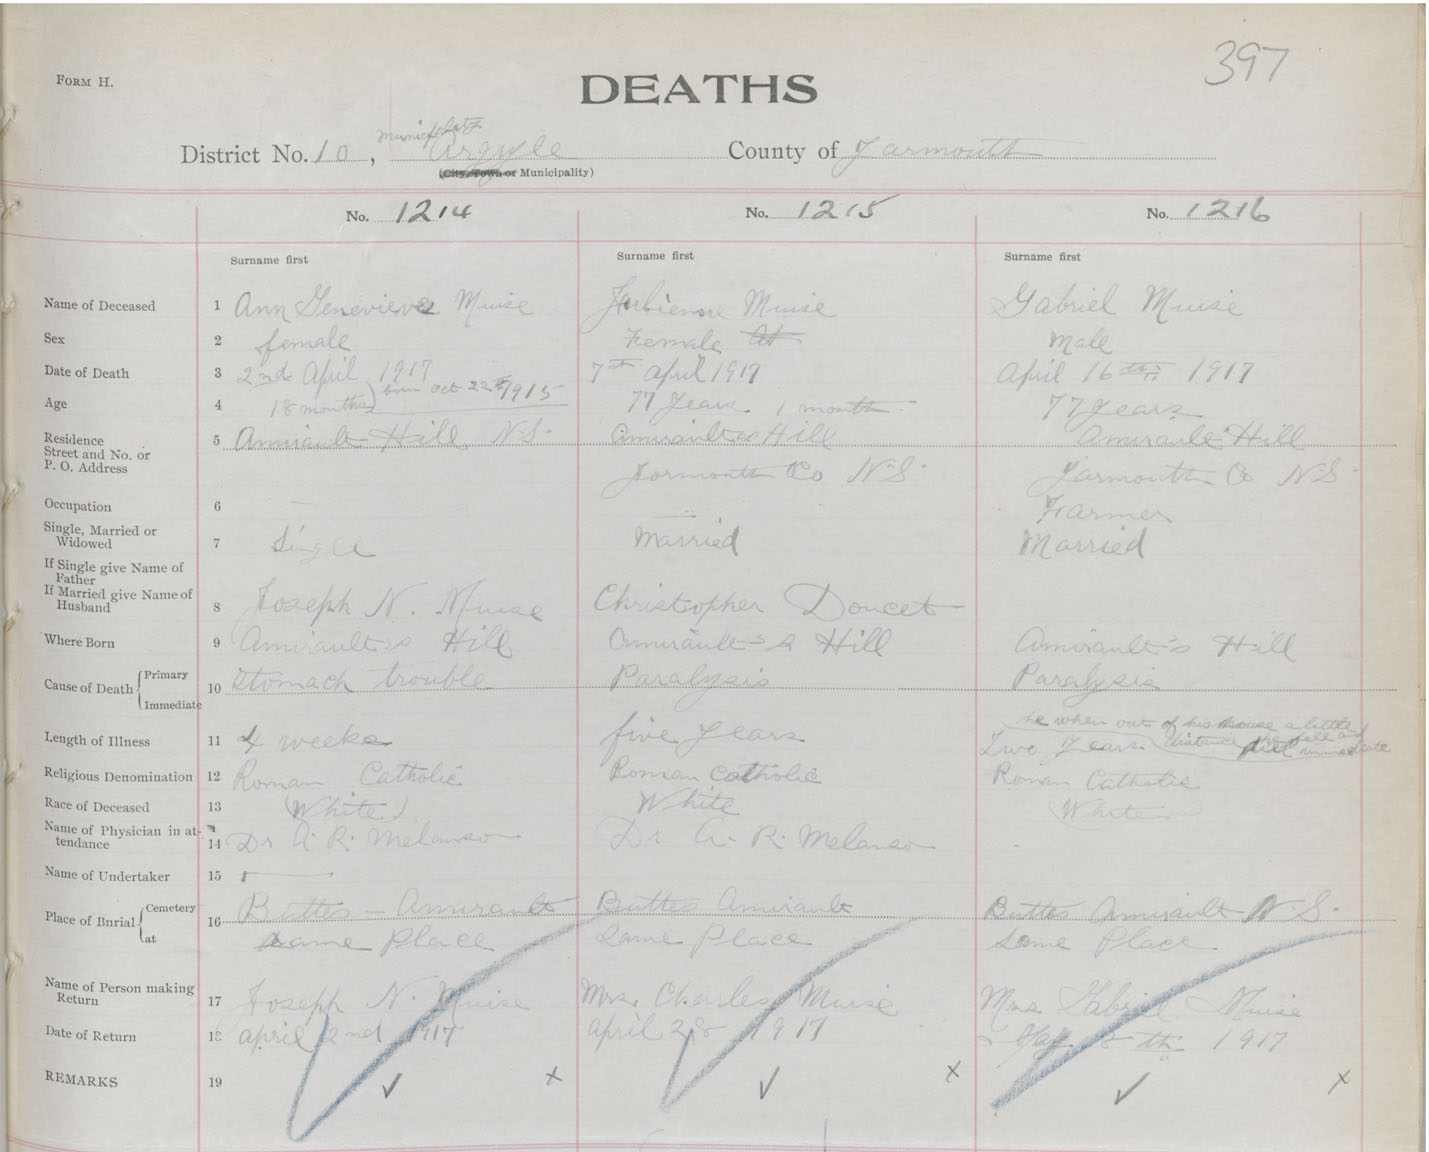 397
FORM H.
DEATHS
Municipality
District No. 10, Argyle County of Yarmouth
(City, Town or Municipality)
No. 1214 No. 1215 No. 1216
Surname first Surname first Surname first
Name of Deceased 1 Ann Genevieve Muise Muise Gabriel Muise
Sex 2 female Female At Male
Date of Death 3 2nd April 1917 7th april 1917 april 16th 1917
Age 4 18 months) born Oct 22nd 1915 77 Years 1 month 77 years
Residence 5 Amirault Hill N.S. Amirault's Hill Amirault Hill
Street and No. or
P. O. Address Yarmouth Co N.S. Yarmouth Co N.S.
Occupation 6 Farmer
Single, Married or
Widowed 7 Single Married Married
If Single give Name of
Father
If Married give Name of
Husband 8 Joseph N. Muise Christopher Doucet
Where Born 9 Amirault's Hill Amirault's Hill Amirault's Hill
Cause of Death Primary 10 Stomach trouble Paralysis Paralysis
Immediate
he when out of his house a little
distance he fell and
died immediate
Length of Illness 11 4 weeks five years Two Years
Religious Denomination 12 Roman Catholic Roman Catholic Roman Catholic
Race of Deceased 13 (White) White White
Name of Physician in at-
tendance 14 Dr A. R. Melanson Dr A. R. Melanson
Name of Undertaker 15
Place of Burial Cemetery 16 Buttes - Amirault Buttes Amirault Buttes Amirault N.S.
at Same Place Same Place Same Place
Name of Person making
Return 17 Joseph N. Muise Mrs. Charles Muise Mrs Gabriel Muise
Date of Return 18 april 2nd 1917 april 28 1917 May 8th 1917
REMARKS 19 ✓ x ✓ x ✓ x